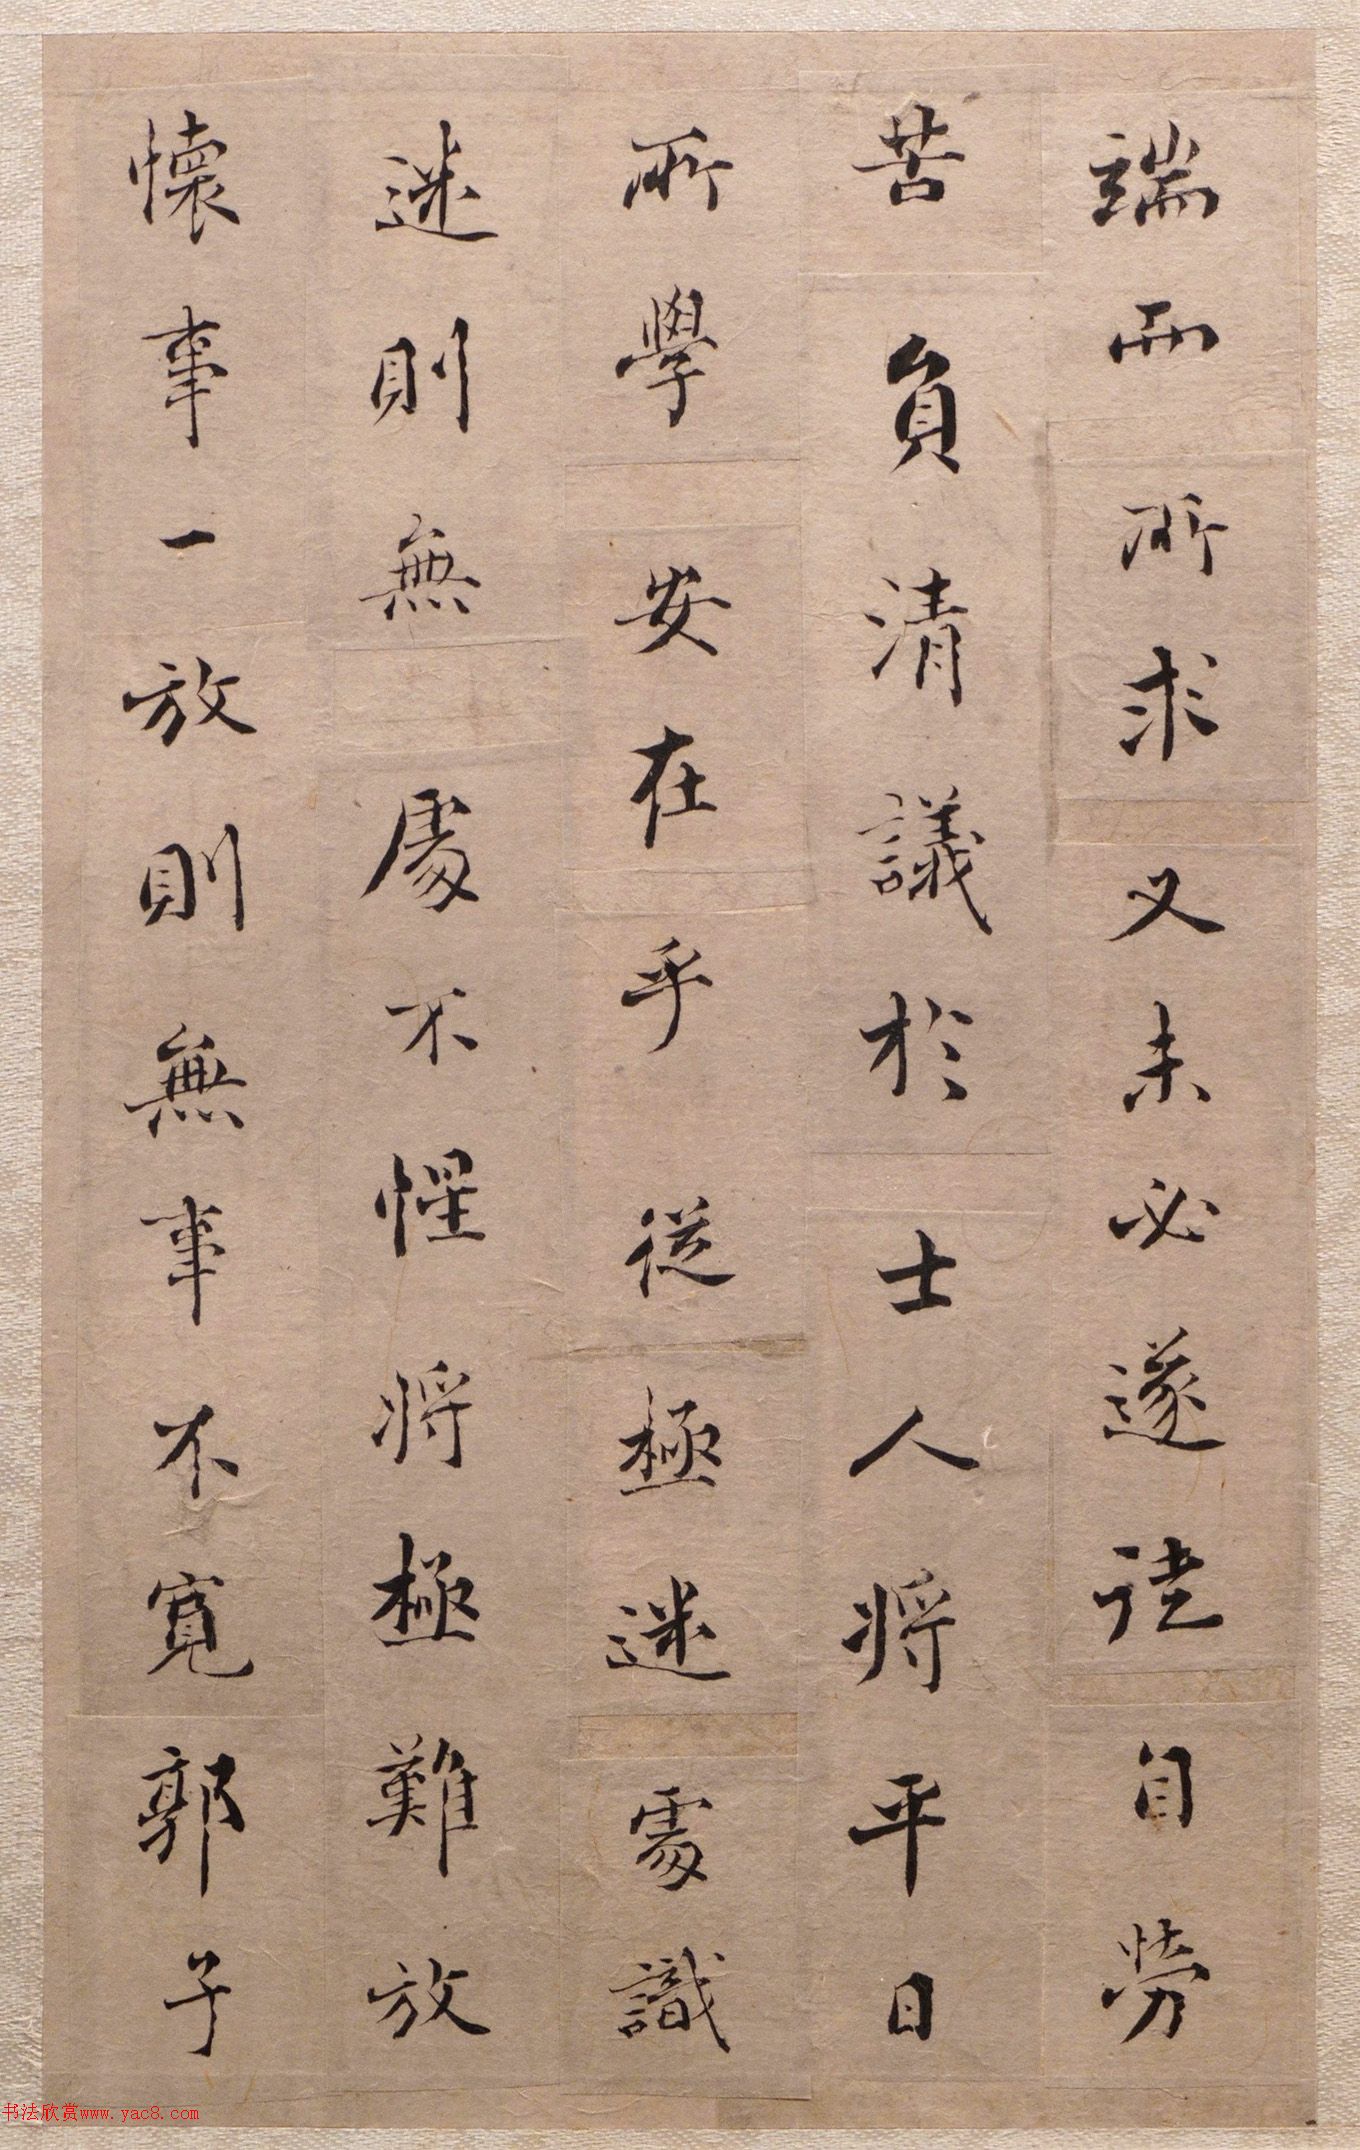 端而所求又未必遂徒自勞
苦負清議於士人將平日
所學安在乎從極迷處識
迷則無處不惺將極難放
懷事一放則無事不寬郭子
书法欣赏www.yac8.com